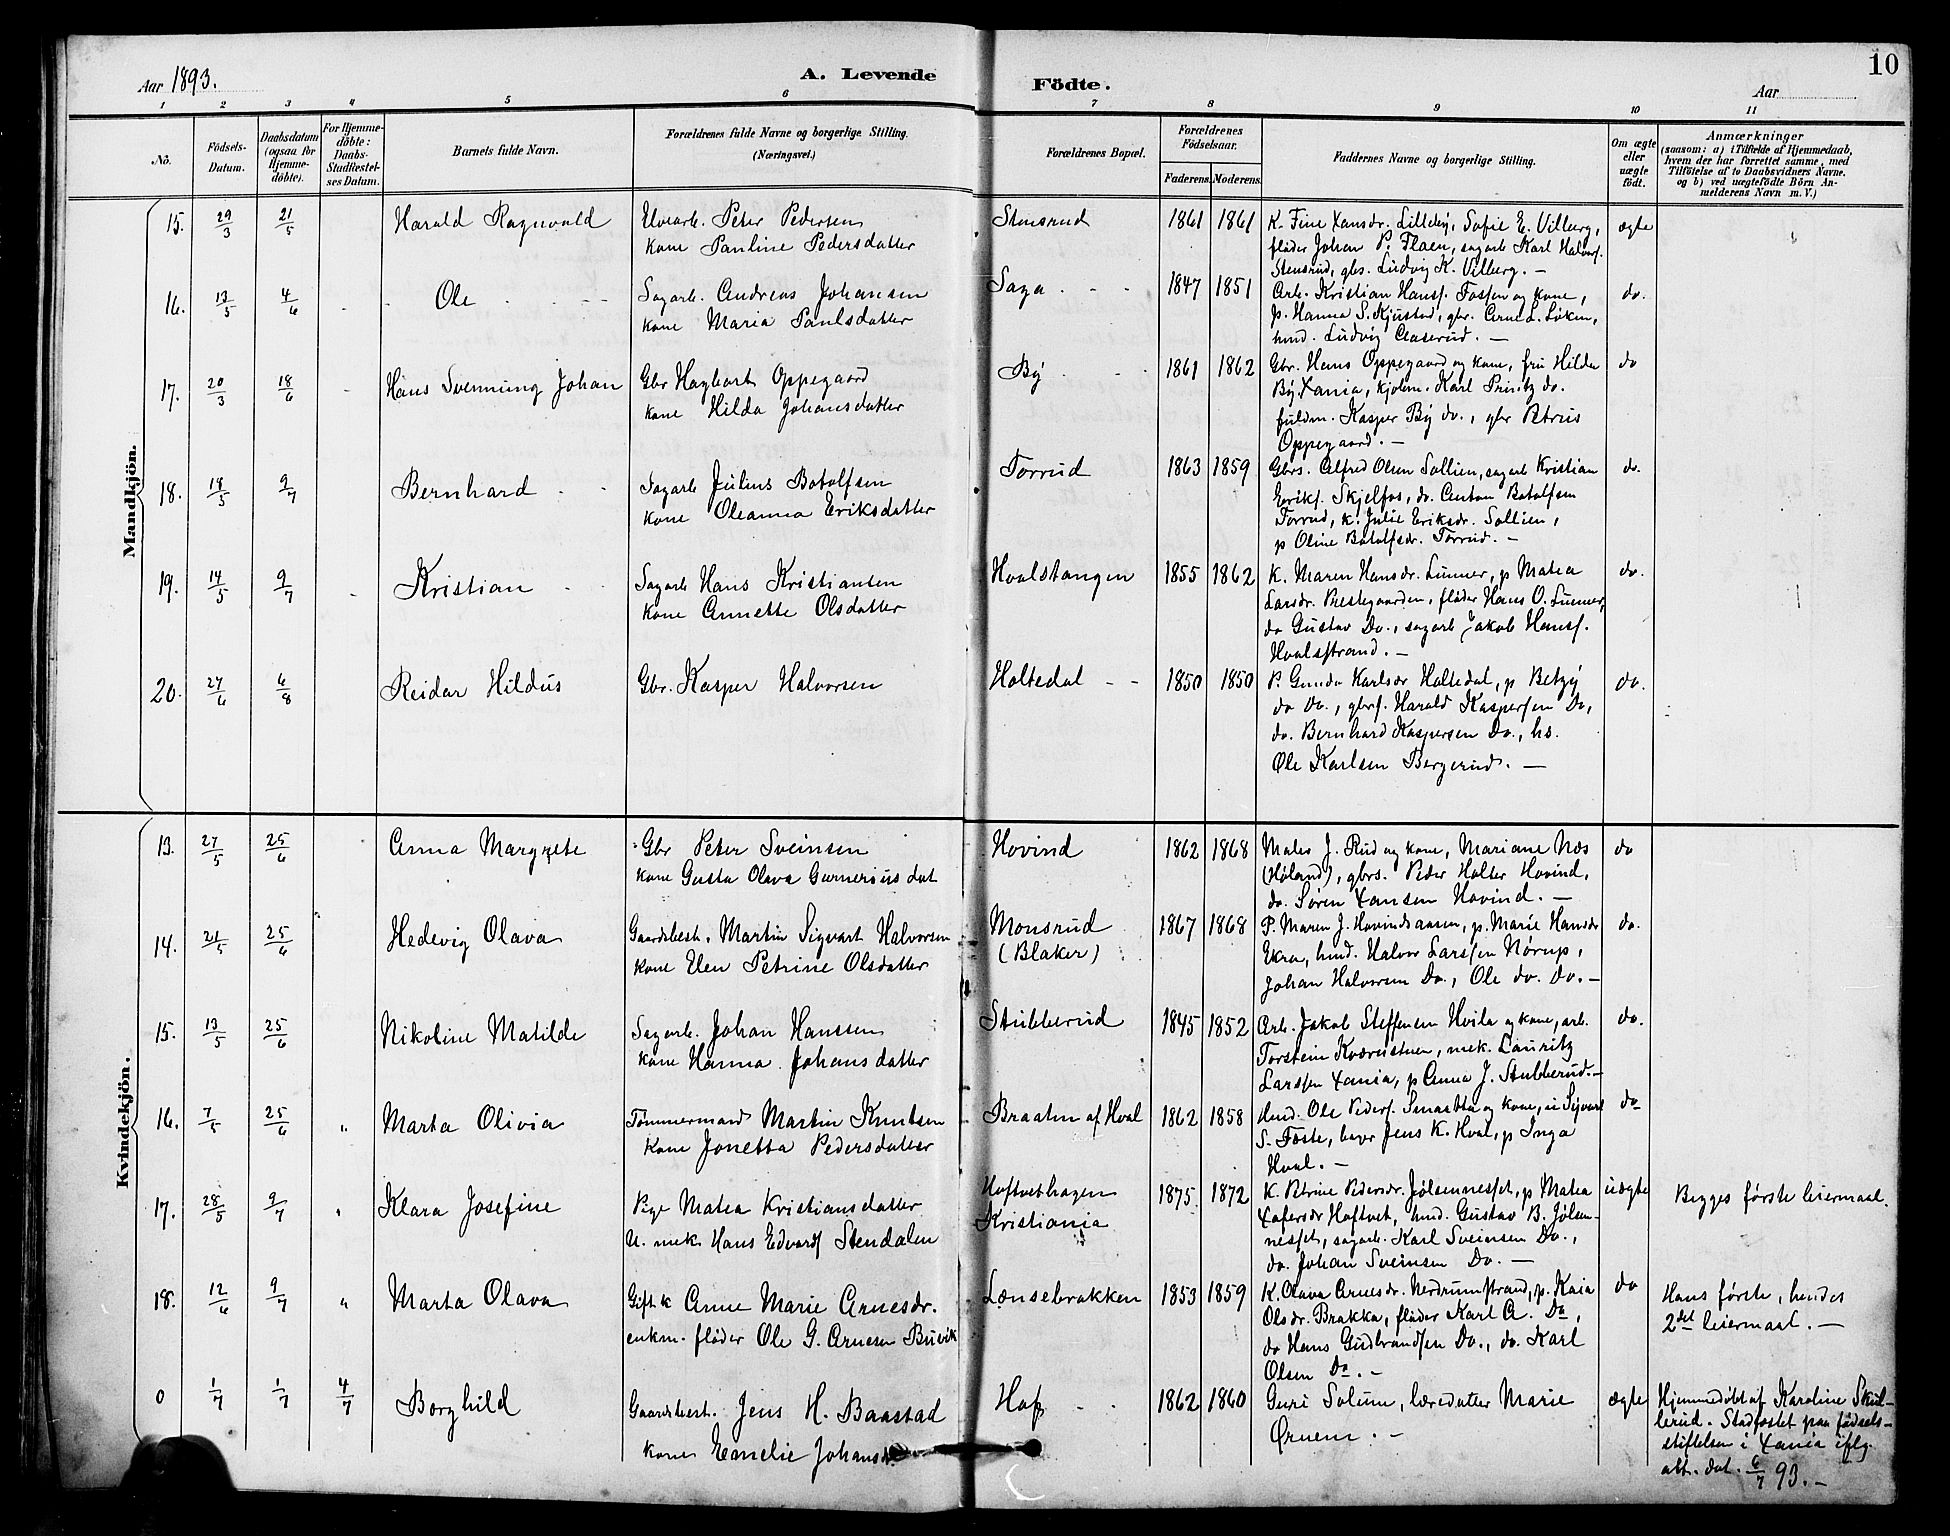 10
Aar 1893.
A. Levende
Födte.
Aar
1 2 3 4 5 6 7 8 9 10 11
No.
Födsels-Datum.
Daabsdatum (ogsaa for Hjemme-döbte).
For Hjemme-döbte: Daabs-Stadfæstel-ses Datum.
Barnets fulde Navn.
Forældrenes fulde Navne og borgerlige Stilling. (Næringsvei.)
Forældrenes Bopæl.
Forældrenes Födselsaar.
Faderens. Moderens.
Faddernes Navne og borgerlige Stilling.
Om ægte eller uægte födt.
Anmærkninger
(saasom: a) i Tilfælde af Hjemmedaab,
hvem der har forrettet samme, med
Tilföielse af to Daabsvidners Navne,
og b) ved uægtefödte Börn An-
melderens Navn m. V.)
Mandkjön.
15. 29/3 21/5 Harald Ragnvald
Elvearb. Peter Pedersen
Kone Pauline Pedersdatter
Stensrud 1861 1861
K. Fine Xansdr. Lilleby, Sofie E. Vilberg,
fløder Johan P. Flaen, sagarb Karl Halvors.
Stensrud, gbs. Ludvig K. Vilberg. —
ægte
16. 13/5 4/6 Ole
Sagarb. Andreas Johansen
Kone Maria Paulsdatter
Saga 1847 1851
Arb. Kristian Hansf. Fossen og kone,
p. Hanna S. Kjustad, gbr. Arne L. Løken,
hmd. Ludvig Claserud. —
do.
17. 20/3 18/6 Hans Svenning Johan
Gbr Hagbart Oppegaard
Kone Hilda Johansdatter
By 1861 1862
Gbr. Hans Oppegaard og kone, fru Hilda
By, Xania, kjøbm. Karl Printz do.
fuldm. Kasper By do., gbr Petrus
Oppegaard. —
do
18. 19/5 9/7 Bernhard
Sagarb Julius Botolfsen
Kone Oleanna Eriksdatter
Torrud 1863 1859
Gbrs. Alfred Olsen Sollien, sagarb Kristian
Eriksf. Skjelfos, do. Anton Botolfsen
Torrud, K. Julie Eriksdr. Sollien,
p Oline Botolfsdr. Torrud. —
do.
19. 14/5 9/7 Kristian
Sagarb Hans Kristiansen
Kone Annette Olsdatter
Hvalstangen 1855 1862
K. Maren Hansdr. Lunner, p Matea
Larsdr. Prestegaarden, fløder Hans O. Lunner,
do Gustav Do., sagarb Jakob Hansf.
Hvalsstrand. —
do.
20. 27/6 6/8 Reidar Hildus
Gbr. Kasper Halvorsen
Holtedal 1850 1850
P. Gunda Karlsdr Holtedal, p Betzy
do Do., gbrs. Harald Kaspersen Do,
do. Bernhard Kaspersen Do., hs.
Ole Karlsen Bergerud. —
do.
Kvindekjön.
13. 27/5 25/6 Anna Margrete
Gbr Peter Sveinsen
Kone Gusta Olava Gunneriusdat
Hovind 1862 1868
Mates J. Rud og kone, Mariane Næs
(Høland), gbrs. Peder Holter Hovind,
do. Søren Xansen Hovind. —
do
14. 21/5 25/6 Hedevig Olava
Gaardsbest. Martin Sigvart Halvorsen
Kone Elen Petrine Olsdatter
Monsrud (Blaker) 1867 1868
P. Maren J. Hovindsaasen, p. Marie Hansdr
Ekra, hmd. Halvor Larssen Nørup,
Johan Halvorsen Do., Ole do. Do. —
do.
15. 13/5 25/6 Nikoline Matilde
Sagarb. Johan Hanssen
Kone Hanna Johansdatter
Stubberud 1845 1852
Arb. Jakob Steffensen Hvila og kone, arb.
Torstein Kværnstuen, mek. Lauritz
Larssen Xania, p Anna J. Stubberud. —
do.
16. 7/5 25/6 " Marta Olivia
Tømmermand Martin Knutsen
Kone Jonetta Pedersdatter
Braaten af Hval 1862 1858
Hmd. Ole Pedersf. Smaatta og kone, u Sigvart
S. Foste, havr Jens K. Hval, p Inga
Hval. —
do
17. 28/5 9/7 " Klara Josefine
Pige Matea Kristiansdatter
U. mek. Hans Edvardf Stendalen
Hoftvethagen
Kristiania
1875 1872
K. Petrine Pedersdr. Jølsennesset, p. Matea
Xofersdr Hoftvet, hmd. Gustav B. Jølsen-
nesset, sagarb. Karl Sveinsen Do.,
do. Johan Sveinsen Do. —
uægte
Begges første leiermaal.
18. 12/6 9/7 " Marta Olava
Gift k Anne Marie Arnesdr.
enkm. fløder Ole G. Arnesen Buvik
Lænsebrakken 1853 1859
K. Olava Arnesdr. Nerdrumstrand, p. Kaia
Olsdr. Brakka, fløder Karl A. Do,
do Hans Gudbrandsen Do., do. Karl
Olsen Do. —
do
Hans første, hendes
2det leiermaal. —
0 1/7 1/7 4/7 Borghild
Gaardsbest. Jens H. Baastad
Kone Emelie Johansdr.
Hof 1862 1860
Guri Solum, læredatter Marie
Ørnem. —
ægte
Hjemmedøbt af Karoline Skul-
lerud. Stadfæstet paa fødsels-
stiftelsen i Xania iflg.
att. dat. 6/7 93. —